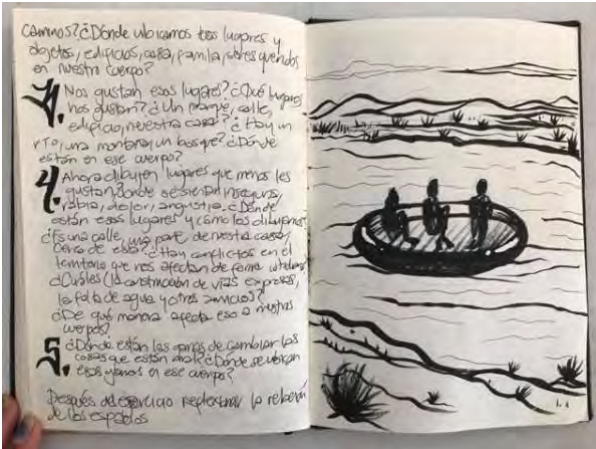 caminos? ¿Dónde ubicamos esos lugares y
objetos, edificios, casa, familia, seres queridos
en nuestro cuerpo?
3. Nos gustan esos lugares? ¿Qué lugares
nos gustan? ¿Un parque, calle,
edificio, nuestra casa? ¿Hay un
río, una montaña, un bosque? ¿Dónde
están en ese cuerpo?
4. Ahora dibujen lugares que menos les
gustan, donde se sienten inseguros,
rabia, dolor, angustia. ¿Dónde
están esos lugares y cómo los dibujamos?
¿Es una calle, una parte de nuestra casa,
cerca de ella? ¿Hay conflictos en el
territorio que nos afectan de forma
¿Cuáles (la construcción de vías expresas,
la falta de agua y otros servicios)?
¿De qué manera afecta eso a nuestros
cuerpos?
5. ¿Dónde están las ganas de cambiar las
cosas que están mal? ¿Dónde se ubican
esas ganas en ese cuerpo?
Después del ejercicio reflexionar la relación
de los espacios